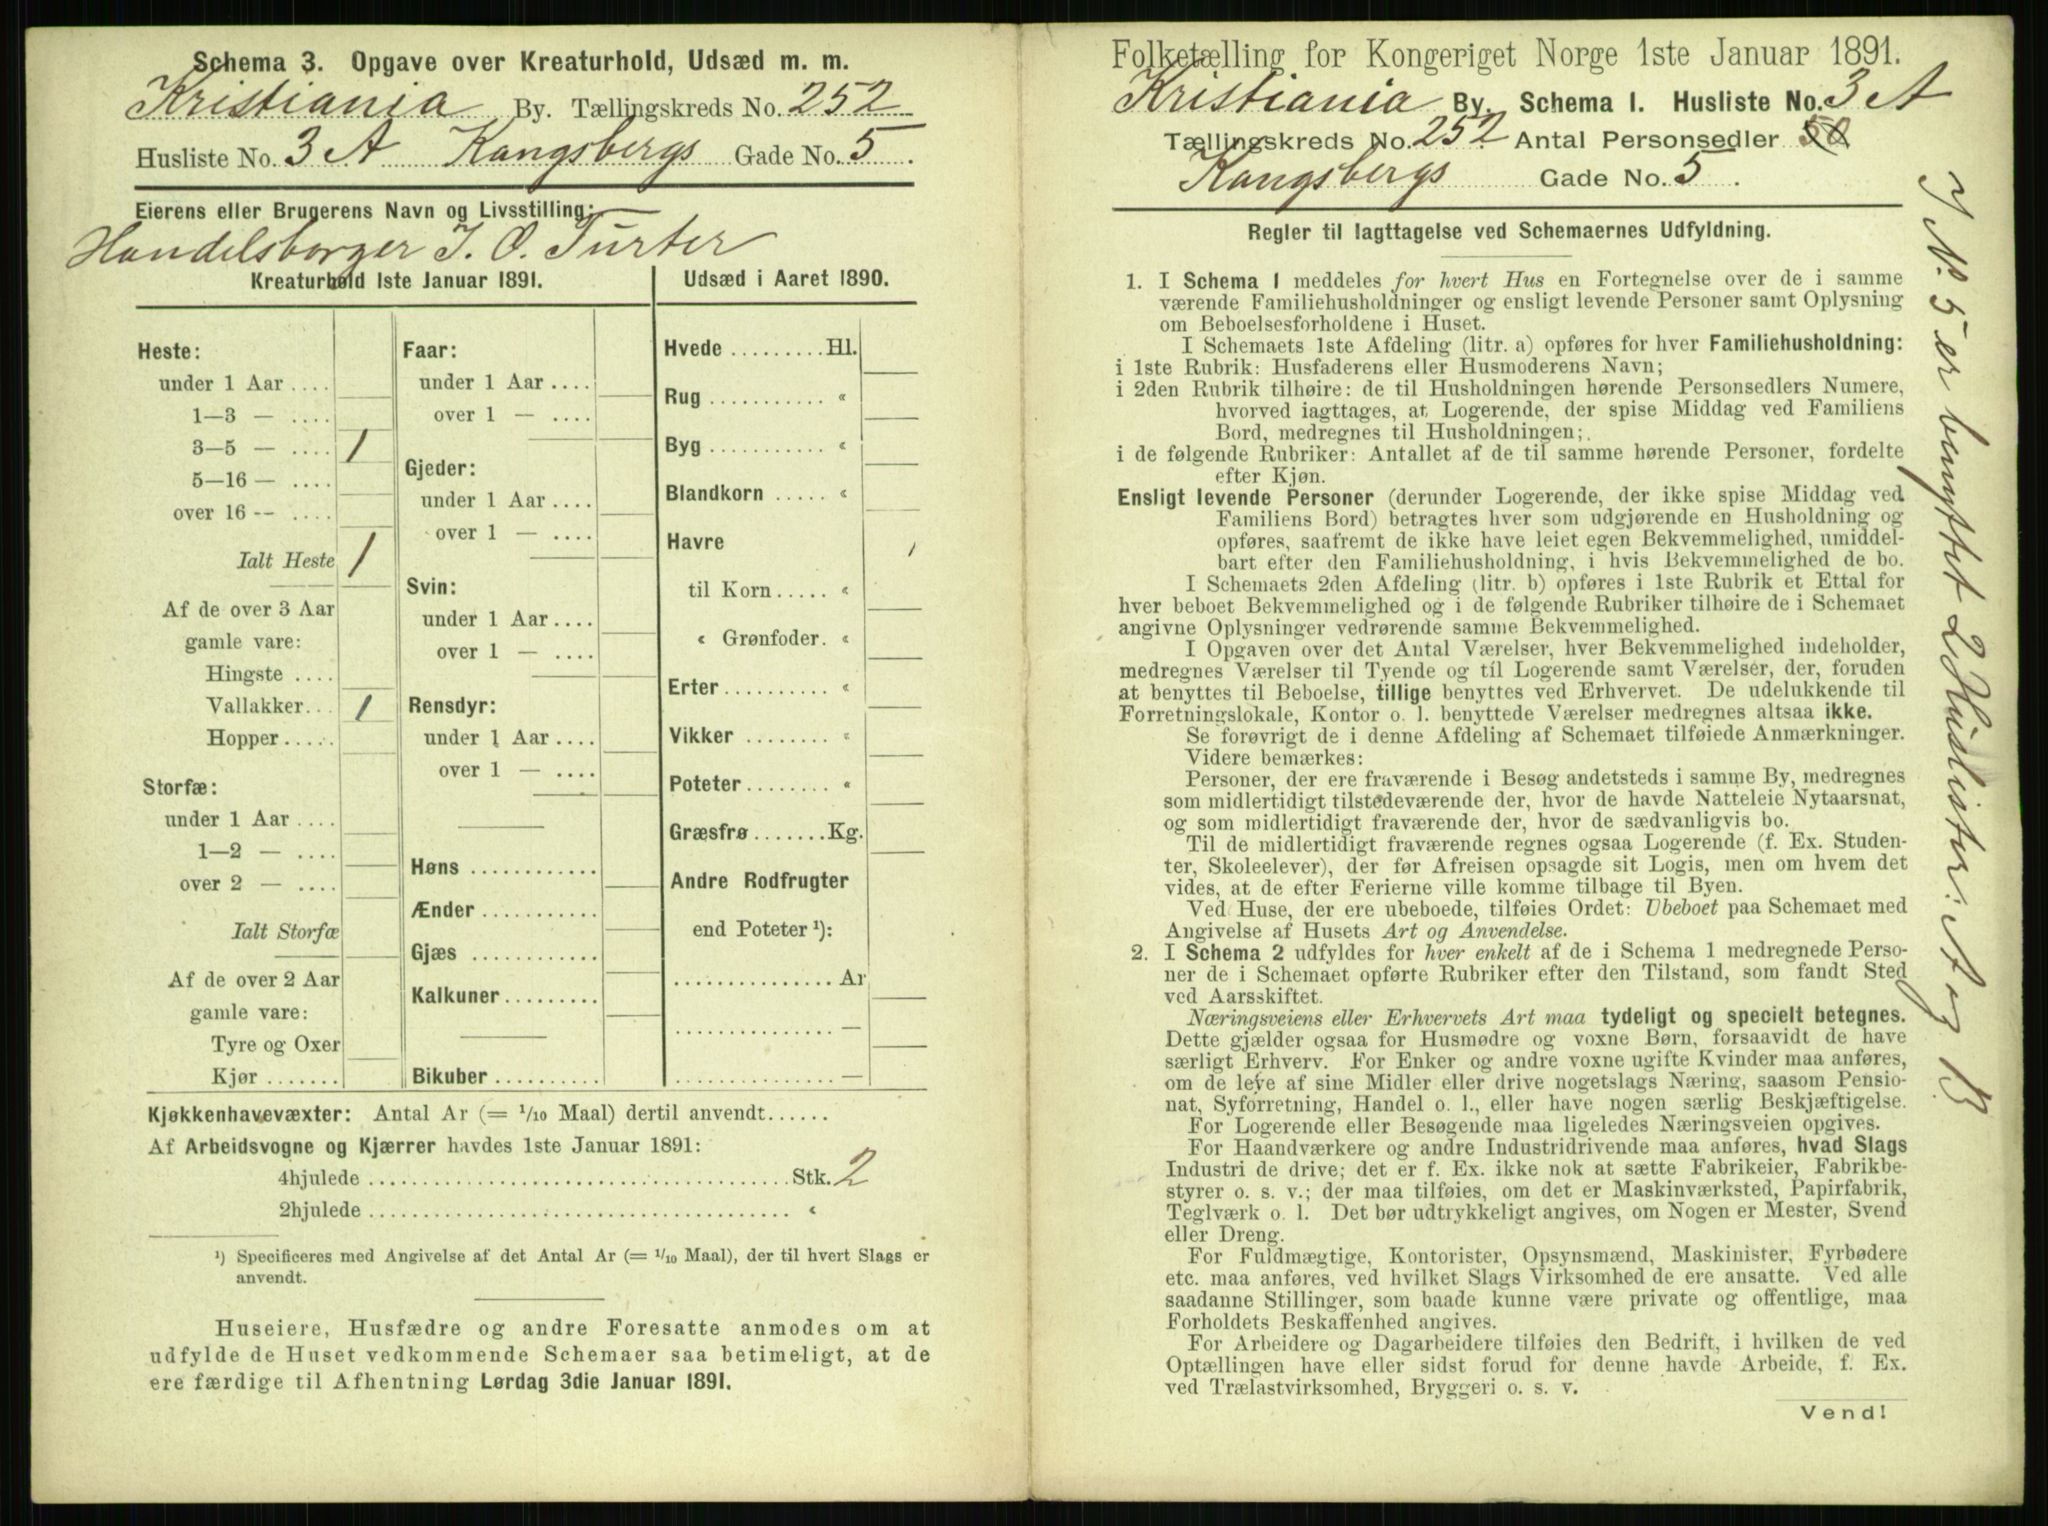 Schema 3. Opgave over Kreaturhold, Udsæd m. m.
Kristiania By. Tællingskreds No. 252
Husliste No. 3 A Kongsbergs Gade No. 5.
Eierens eller Brugerens Navn og Livsstilling:
Handelsborger J. O. Turter
Kreaturhold 1ste Januar 1891.
Heste:
under 1 Aar ....
1—3 — ....
3—5 — .... 1
5—16 — ....
over 16 -- ....
Ialt Heste 1
Af de over 3 Aar
gamle vare:
Hingste ....
Vallakker... 1
Hopper .....
Storfæ:
under 1 Aar ....
1—2 — ....
over 2 — ....
Ialt Storfæ
Af de over 2 Aar
gamle vare:
Tyre og Oxer
Kjør .......
Faar:
under 1 Aar ....
over 1 — ....
Gjeder:
under 1 Aar ....
over 1 — ....
Svin:
under 1 Aar ....
over 1 — ....
Rensdyr:
under 1 Aar ....
over 1 — ....
Høns ............
Ænder ...........
Gjæs ............
Kalkuner .........
Bikuber ..........
Udsæd i Aaret 1890.
Hvede ......... Hl.
Rug ........... «
Byg ........... «
Blandkorn ..... «
Havre
til Korn ..... «
« Grønfoder. «
Erter .......... «
Vikker ........ «
Poteter ........ «
Græsfrø ....... Kg.
Andre Rodfrugter
end Poteter ¹):
............... Ar
............... —
............... —
Kjøkkenhavevæxter: Antal Ar (= 1/10 Maal) dertil anvendt......
Af Arbeidsvogne og Kjærrer havdes 1ste Januar 1891:
4hjulede ........................................ Stk. 2
2hjulede ........................................ «
¹) Specificeres med Angivelse af det Antal Ar (= 1/10 Maal), der til hvert Slags er
anvendt.
Huseiere, Husfædre og andre Foresatte anmodes om at
udfylde de Huset vedkommende Schemaer saa betimeligt, at de
ere færdige til Afhentning Lørdag 3die Januar 1891.
Folketælling for Kongeriget Norge 1ste Januar 1891.
Kristiania By. Schema 1. Husliste No. 3 A
Tællingskreds No. 252 Antal Personsedler 50
Kongsbergs Gade No. 5.
Regler til Iagttagelse ved Schemaernes Udfyldning.
1. I Schema 1 meddeles for hvert Hus en Fortegnelse over de i samme
værende Familiehusholdninger og ensligt levende Personer samt Oplysning
om Beboelsesforholdene i Huset.
I Schemaets 1ste Afdeling (litr. a) opføres for hver Familiehusholdning:
i 1ste Rubrik: Husfaderens eller Husmoderens Navn;
i 2den Rubrik tilhøire: de til Husholdningen hørende Personsedlers Numere,
hvorved iagttages, at Logerende, der spise Middag ved Familiens
Bord, medregnes til Husholdningen;
i de følgende Rubriker: Antallet af de til samme hørende Personer, fordelte
efter Kjøn.
Ensligt levende Personer (derunder Logerende, der ikke spise Middag ved
Familiens Bord) betragtes hver som udgjørende en Husholdning og
opføres, saafremt de ikke have leiet egen Bekvemmelighed, umiddel-
bart efter den Familiehusholdning, i hvis Bekvemmelighed de bo.
I Schemaets 2den Afdeling (litr. b) opføres i 1ste Rubrik et Ettal for
hver beboet Bekvemmelighed og i de følgende Rubriker tilhøire de i Schemaet
angivne Oplysninger vedrørende samme Bekvemmelighed.
I Opgaven over det Antal Værelser, hver Bekvemmelighed indeholder,
medregnes Værelser til Tyende og til Logerende samt Værelser, der, foruden
at benyttes til Beboelse, tillige benyttes ved Erhvervet. De udelukkende til
Forretningslokale, Kontor o. l. benyttede Værelser medregnes altsaa ikke.
Se forøvrigt de i denne Afdeling af Schemaet tilføiede Anmærkninger.
Videre bemærkes:
Personer, der ere fraværende i Besøg andetsteds i samme By, medregnes
som midlertidigt tilstedeværende der, hvor de havde Natteleie Nytaarsnat,
og som midlertidigt fraværende der, hvor de sædvanligvis bo.
Til de midlertidigt fraværende regnes ogsaa Logerende (f. Ex. Studen-
ter, Skoleelever), der før Afreisen opsagde sit Logis, men om hvem det
vides, at de efter Ferierne ville komme tilbage til Byen.
Ved Huse, der ere ubeboede, tilføies Ordet: Ubeboet paa Schemaet med
Angivelse af Husets Art og Anvendelse.
2. I Schema 2 udfyldes for hver enkelt af de i Schema 1 medregnede Perso-
ner de i Schemaet opførte Rubriker efter den Tilstand, som fandt Sted
ved Aarsskiftet.
Næringsveiens eller Erhvervets Art maa tydeligt og specielt betegnes.
Dette gjælder ogsaa for Husmødre og voxne Børn, forsaavidt de have
særligt Erhverv. For Enker og andre voxne ugifte Kvinder maa anføres,
om de leve af sine Midler eller drive nogetslags Næring, saasom Pensio-
nat, Syforretning, Handel o. l., eller have nogen særlig Beskjæftigelse.
For Logerende eller Besøgende maa ligeledes Næringsveien opgives.
For Haandværkere og andre Industridrivende maa anføres, hvad Slags
Industri de drive; det er f. Ex. ikke nok at sætte Fabrikeier, Fabrikbe-
styrer o. s. v.; der maa tilføies, om det er Maskinværksted, Papirfabrik,
Teglværk o. l. Det bør udtrykkeligt angives, om Nogen er Mester, Svend
eller Dreng.
For Fuldmægtige, Kontorister, Opsynsmænd, Maskinister, Fyrbødere
etc. maa anføres, ved hvilket Slags Virksomhed de ere ansatte. Ved alle
saadanne Stillinger, som baade kunne være private og offentlige, maa
Forholdets Beskaffenhed angives.
For Arbeidere og Dagarbeidere tilføies den Bedrift, i hvilken de ved
Optællingen have eller sidst forud for denne havde Arbeide, f. Ex.
ved Trælastvirksomhed, Bryggeri o. s. v.
Vend!
I N. 5 er benyttet 2 Huslister: A og B